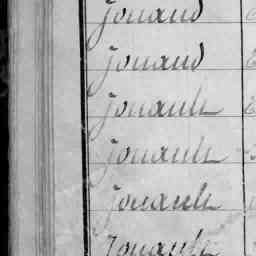 Jouand
Jouand
Jouault
Jouault
Jouault
Jouault